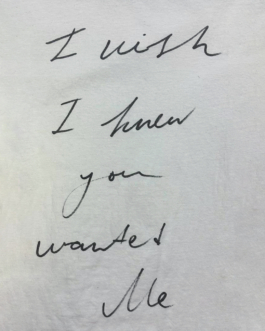 I wish
I knew
you
wanted
Me